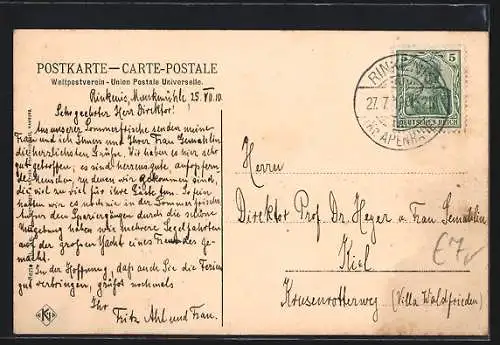 POSTKARTE — CARTE-POSTALE
Weltpostverein - Union Postale Universelle.
Rinkenis, Munkmühle, 25. VII. 10.
Sehr geehrter Herr Direktor!
Aus unserer Sommerfrische senden meine
Frau und ich Ihnen und Ihrer Frau Gemahlin
die herzlichsten Grüße. Wir haben es hier sehr
gut getroffen; es sind herzensgute
Menschen, zu denen wir gekommen sind,
die viel zu viel für ihre Gäste tun. So fein
hatten wir es noch nie in der Sommerfrische.
Außer den Spaziergängen durch die schöne
Umgebung haben wir mehrere Segelfahrten
auf der großen Yacht eines Freundes ge-
macht.
In der Hoffnung, daß auch Sie die Ferien
gut verbringen, grüßt nochmals
Ihr
Fritz Ahl und Frau.
KJ
RINKENIS
27.7.10
(KR. APENRADE)
5
DEUTSCHES REICH
Herrn
Direktor Prof. Dr. Heyer u. Frau Gemahlin
Kiel
€7,-
Krusenrotterweg (Villa Waldfrieden)